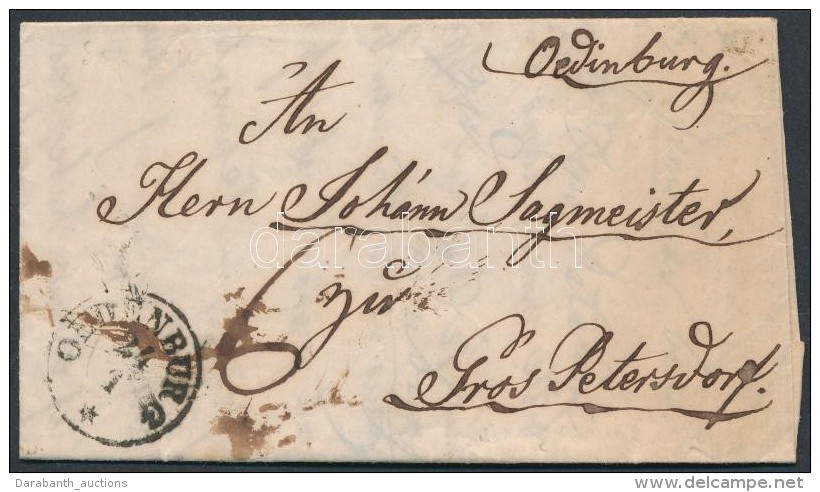 Oedinburg.
An
Herrn Johánn Sagmeister,
zu
6
Gros Petersdorf.
OEDENBURG
darabanth
Darabanth_auctions
www.delcampe.net